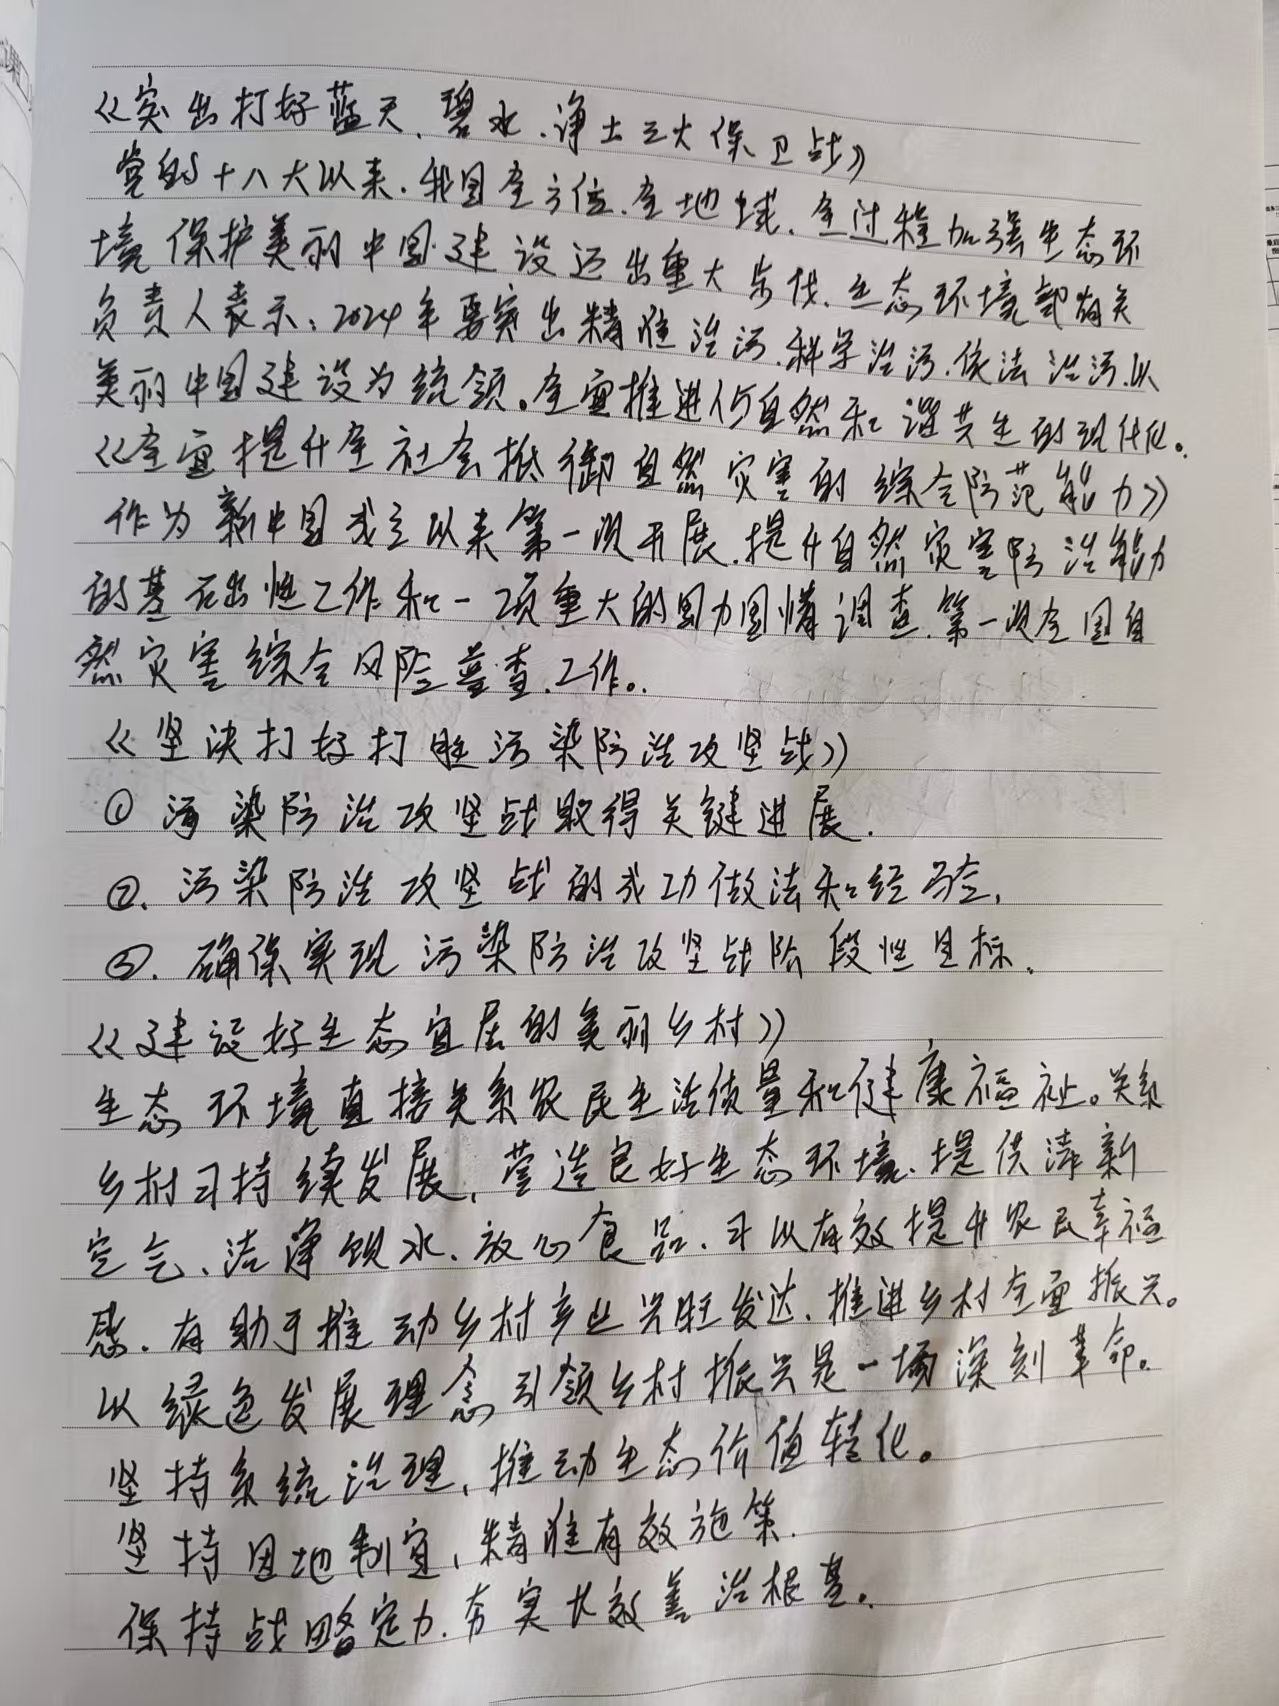 《突出打好蓝天、碧水、净土三大保卫战》
党的十八大以来.我国全方位、全地域、全过程加强生态环
境保护美丽中国建设迈出重大步伐、生态环境部有关
负责人表示：2024年要突出精准治污、科学治污、依法治污、以
美丽中国建设为统领。全面推进人与自然和谐共生的现代化。
《全面提升全社会抵御自然灾害的综合防范能力》
作为新中国成立以来第一次开展、提升自然灾害防治能力
的基石出性工作和一项重大的国力国情调查、第一次全国自
然灾害综合风险普查、工作。
《坚决打好打胜污染防治攻坚战》
① 污染防治攻坚战取得关键进展.
②、污染防治攻坚战的成功做法和经验、
③、确保实现污染防治攻坚战阶段性目标、
《建设好生态宜居的美丽乡村》
生态环境直接关系农民生活质量和健康福祉。关系
乡村可持续发展、营造良好生态环境、提供清新
空气、洁净饮水、放心食品、可以有效提升农民幸福
感、有助于推动乡村产业兴旺发达、推进乡村全面振兴。
以绿色发展理念引领乡村振兴是一场深刻革命。
坚持系统治理、推动生态价值转化。
坚持因地制宜、精准有效施策.
保持战略定力、夯实长效善治根基。